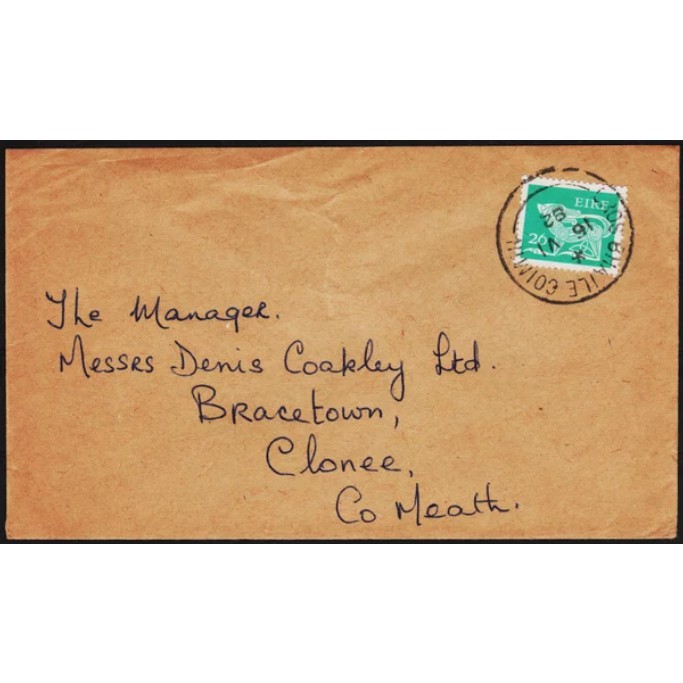 EIRE
26
16
VI
82
The Manager.
Messrs Denis Coakley Ltd.
Bracetown,
Clonee,
Co Meath.